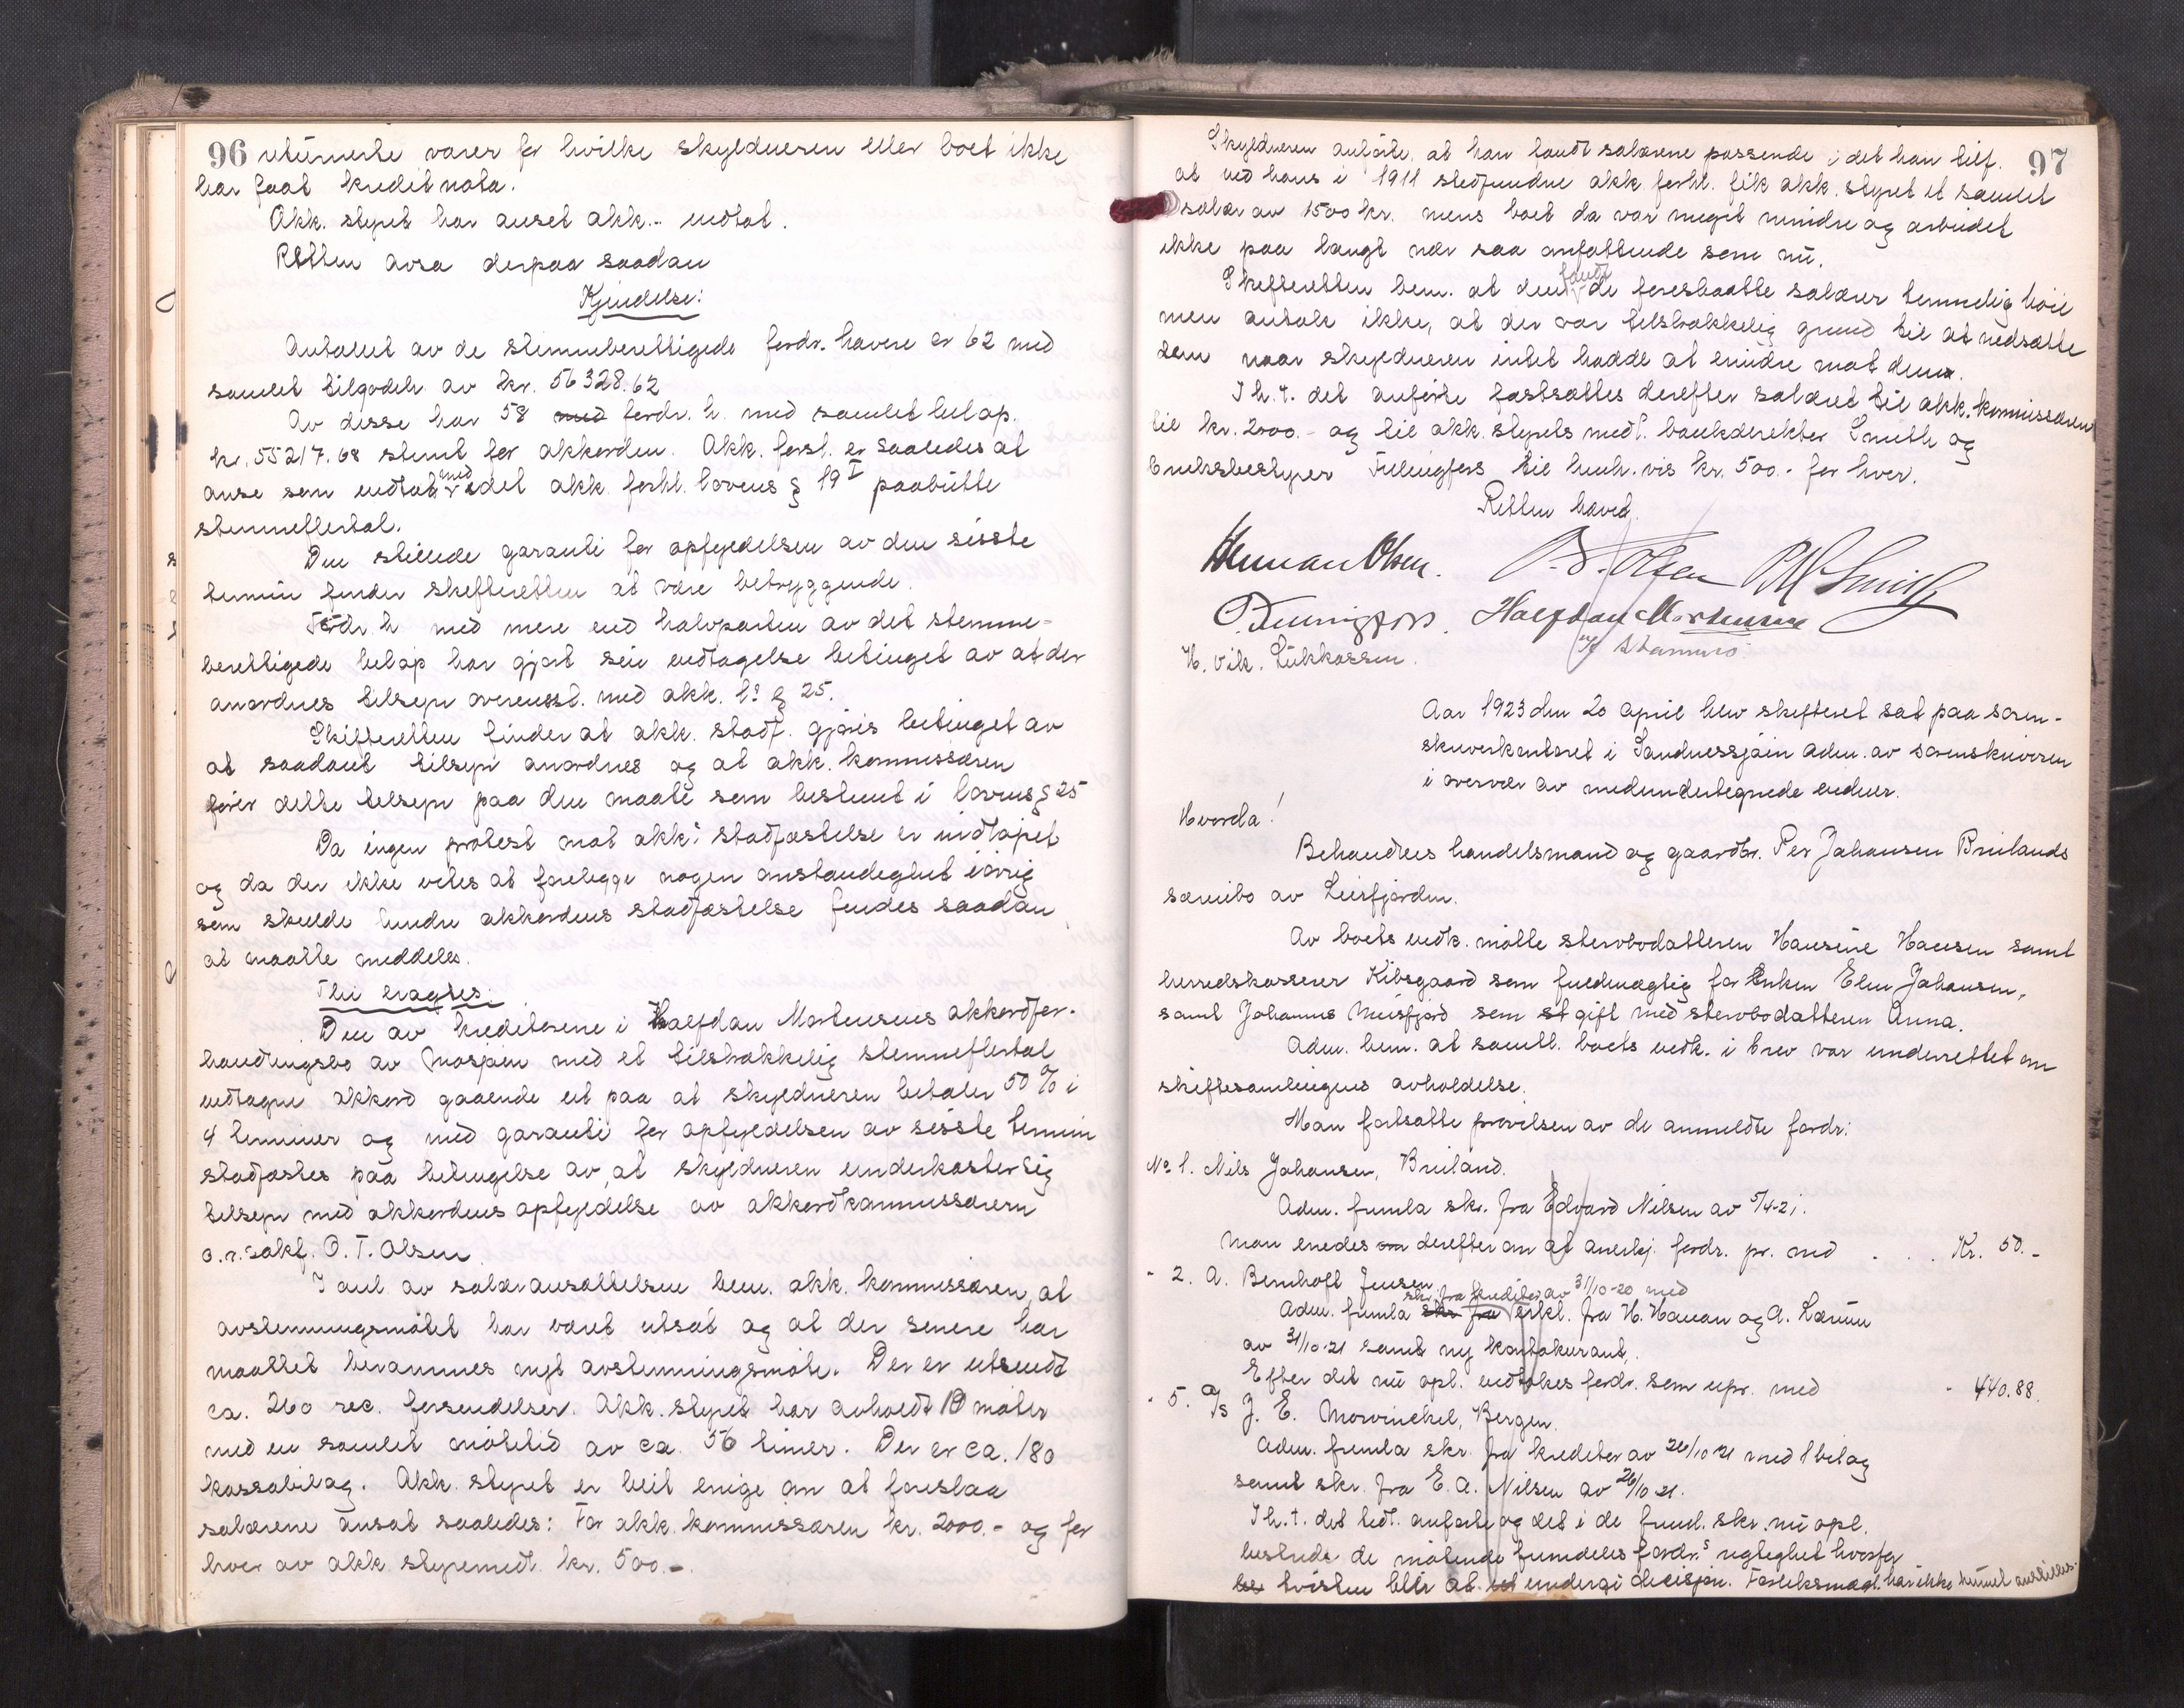 96 returnerte varer for hvilke skyldneren eller boet ikke
har faat kreditnota.
Akk. styret har anset akk. vedtat.
Retten avsa derpaa saadan
Kjendelse:
Antallet av de stemmeberettigede fordr. havere er 62 med
samlet tilgodeh. av kr. 56328.62
Av disse har 58 med fordr. h. med samlet beløp.
kr. 55217.68 stemt for akkorden. Akk. forsl. er saaledes at
anse som vedtat med det akk. forhl. lovens § 19 I paabudte
stemmeflertal.
Den stillede garanti for opfyldelsen av den sisste
termin finder skifteretten at være betryggende.
Fordr. h med mere end halvparten av det stemme-
berettigede beløp har gjort sin vedtagelse betinget av at der
anordnes tilsyn overensst. med akk. l. § 25.
Skifteretten finder at akk. stadf. gjøres betinget av
at saadant tilsyn anordnes og at akk. kommissæren
fører dette tilsyn paa den maate som bestemt i lovens § 25
Da ingen protest mot akk. stadfæstelse er indløpet
og da der ikke vites at foreligge nogen omstændighet iøvrig
som skulde hindre akkordens stadfæstelse findes saadan
at maatte meddeles.
Thi eragtes:
Den av kreditorene i Halfdan Mortensens akkordfor-
handlingsbo av Mosjøen med et tilstrækkelig stemmeflertal
vedtagne akkord gaaende ut paa at skyldneren betaler 50 % i
4 terminer og med garanti for opfyldelsen av sisste termin
stadfæstes paa betingelse av, at skyldneren underkaster sig
tilsyn med akkordens opfyldelse av akkordkommissæren
o.r.sakf. O. T. Olsen
I anl. av salæransættelsen bem. akk. kommissæren, at
avstemningsmøtet har været utsat og at der senere har
maattet berammes nyt avstemningsmøte. Der er utsendt
ca. 260 rec. forsendelser. Akk. styret har avholdt 19 møter
med en samlet møtetid av ca. 56 timer. Der er ca. 180
kassabilag. Akk. styret er blit enige om at foreslaa
salærene ansat saaledes: For akk. kommissæren kr. 2000.- og for
hver av akk. styremedl. kr. 500.-
97
Skyldneren anførte, at han fandt salærene passende idet han tilf.
at ved hans i 1911 stedfundne akk. forhl. fik akk. styret et samlet
salær av 1500 kr. mens boet da var meget mindre og arbeidet
ikke paa langt nær saa omfattende som nu.
Skifteretten bem. at den fandt de foreslaatte salærer temmelig høie
men antok ikke, at der var tilstrækkelig grund til at nedsætte
dem naar skyldneren intet hadde at erindre mot dem.
I h. t. det anførte fastsættes derefter salæret til akk. kommissæren
til kr. 2000.- og til akk. styrets medl. bankdirektør Smith og
bruksbestyrer til henh. vis kr. 500.- for hver.
Retten hævet.
Herman Olsen. O. T. Olsen Smith
Halfdan Mortensen
H. Vik.
Aar 1923 den 20 april blev skifteret sat paa soren-
skriverkontoret i Sandnessjøen adm. av sorenskriveren
i overvær av medundertegnede vidner.
Hvorda!
Behandles handelsmand og gaardbr. Per Johansen Brulands
særeibo av Leirfjorden.
Av boets vedk. møtte stervbodatteren Hansine Hansen samt
herredskasserer Kibsgaard som fuldmægtig for Enken Elen Johansen,
samt Johannes Meisfjord som st gift med stervbodatteren Anna.
Adm. bem. at samtl. boets vedk. i brev var underrettet om
skiftesamlingens avholdelse.
Man fortsatte prøvelsen av de anmeldte fordr:
No 1. Nils Johansen, Bruland.
Adm. fremla skr. fra Edvard Nilsen av 5/4-21.
Man enedes om derefter om at anerkj. fordr. pr. med . . . Kr. 50.-
- 2. A. Bernhoft Jensen
skr. fra kreditor av 31/10-20 med
Adm. fremla skr fra erkl. fra H. Hanan og A.
av 31/10-21 samt ny kontokurant.
Efter det nu opl. vedtokes fordr. som upr. med - 440.88.
- 5. A/s J. E. Mowinckel, Bergen.
Adm. fremla skr. fra kreditor av 26/10 21 med 1 bilag
samt skr. fra E. A. Nilsen av 26/10 21.
I h. t. det tidl. anførte og det i de freml. skr. nu opl.
bestreds de møtende fremdeles fordr.s rigtighet hvorfor
tvisten blir at undergi decision. Forliksmægl. har ikke kunnet anstilles.